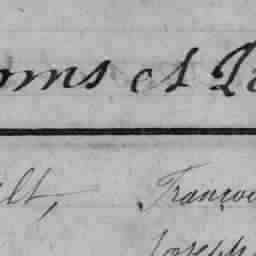 oms et P
lt, Franço
Joseph